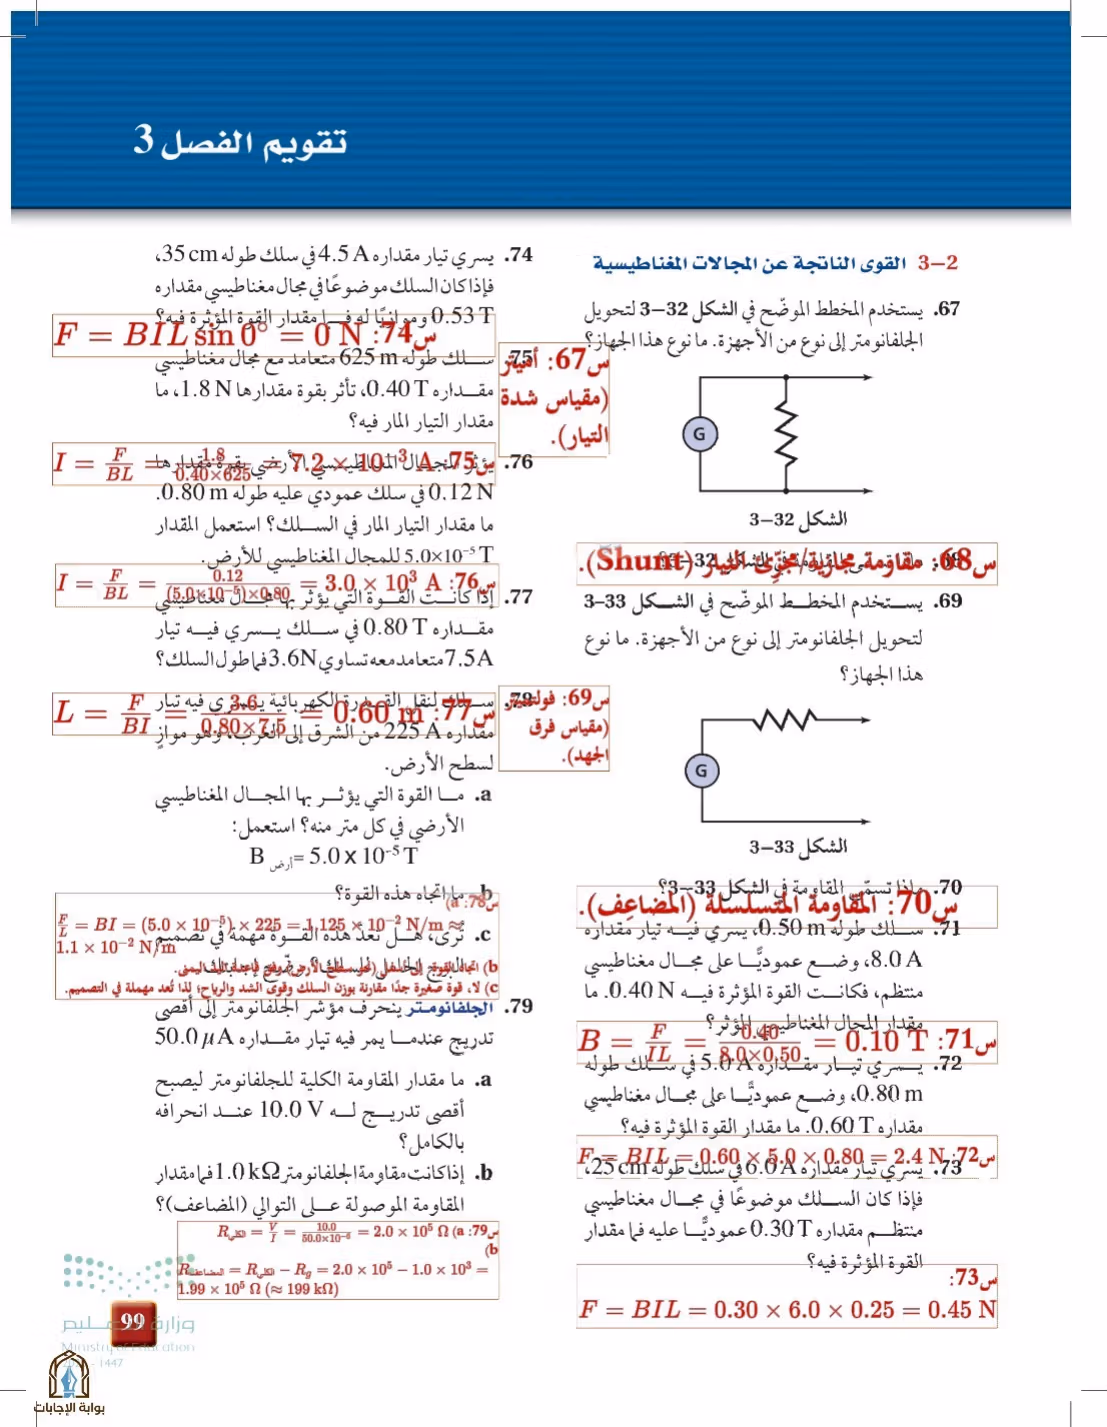 تقويم الفصل 3
3-2 القوى الناتجة عن المجالات المغناطيسية
67. يستخدم المخطط الموضّح في الشكل 32-3 لتحويل
الجلفانومتر إلى نوع من الأجهزة. ما نوع هذا الجهاز؟
س67: أميتر
(مقياس شدة
التيار).
G
الشكل 32-3
س68: مقاومة مجازية/مجزّئ التيار (Shunt).
69. يستخدم المخطط الموضّح في الشكل 33-3
لتحويل الجلفانومتر إلى نوع من الأجهزة. ما نوع
هذا الجهاز؟
س69: فولتمتر
(مقياس فرق
الجهد).
G
الشكل 33-3
70. ماذا تسمّى المقاومة في الشكل 33-3؟
س70: المقاومة المتسلسلة (المضاعِف).
71. سلك طوله 0.50 m، يسري فيه تيار مقداره
8.0 A، وضع عموديًّا على مجال مغناطيسي
منتظم، فكانت القوة المؤثرة فيه 0.40 N. ما
مقدار المجال المغناطيسي المؤثر؟
س71: B = F/IL = 0.40/8.0×0.50 = 0.10 T
72. يسري تيار مقداره 5.0 A في سلك طوله
0.80 m، وضع عموديًّا على مجال مغناطيسي
مقداره 0.60 T. ما مقدار القوة المؤثرة فيه؟
س72: F = BIL = 0.60 × 5.0 × 0.80 = 2.4 N
73. يسري تيار مقداره 6.0 A في سلك طوله 25 cm،
فإذا كان السلك موضوعًا في مجال مغناطيسي
منتظم مقداره 0.30 T عموديًّا عليه فما مقدار
القوة المؤثرة فيه؟
س73:
F = BIL = 0.30 × 6.0 × 0.25 = 0.45 N
74. يسري تيار مقداره 4.5 A في سلك طوله 35 cm،
فإذا كان السلك موضوعًا في مجال مغناطيسي مقداره
0.53 T وموازيًا له فما مقدار القوة المؤثرة فيه؟
س74: F = BIL sin 0° = 0 N
75. سلك طوله 625 m متعامد مع مجال مغناطيسي
مقداره 0.40 T، تأثر بقوة مقدارها 1.8 N، ما
مقدار التيار المار فيه؟
س75: I = F/BL = 1.8/0.40×625 = 7.2 × 10⁻³ A
76. يؤثر المجال المغناطيسي الأرضي بقوة مقدارها
0.12 N في سلك عمودي عليه طوله 0.80 m.
ما مقدار التيار المار في السلك؟ استعمل المقدار
5.0×10⁻⁵ T للمجال المغناطيسي للأرض.
س76: I = F/BL = 0.12/(5.0×10⁻⁵)×0.80 = 3.0 × 10³ A
77. إذا كانت القوة التي يؤثر بها مجال مغناطيسي
مقداره 0.80 T في سلك يسري فيه تيار
7.5 A متعامد معه تساوي 3.6 N فما طول السلك؟
س77: L = F/BI = 3.6/0.80×7.5 = 0.60 m
78. سلك لنقل القدرة الكهربائية يسري فيه تيار
مقداره 225 A من الشرق إلى الغرب، وهو موازٍ
لسطح الأرض.
a. ما القوة التي يؤثر بها المجال المغناطيسي
الأرضي في كل متر منه؟ استعمل:
B أرض = 5.0 x 10⁻⁵ T
b. ما اتجاه هذه القوة؟
س78: a)
F/L = BI = (5.0 × 10⁻⁵) × 225 = 1.125 × 10⁻² N/m ≈
1.1 × 10⁻² N/m
c. تُرى، هل تعدّ هذه القوة مهمة في تصميم
c) لا، قوة صغيرة جدًا مقارنة بوزن السلك وقوى الشد والرياح؛ لذا تُعد مهملة في التصميم.
79. الجلفانومتر ينحرف مؤشر الجلفانومتر إلى أقصى
تدريج عندما يمر فيه تيار مقداره 50.0 μA
a. ما مقدار المقاومة الكلية للجلفانومتر ليصبح
أقصى تدريج له 10.0 V عند انحرافه
بالكامل؟
b. إذا كانت مقاومة الجلفانومتر 1.0 kΩ فما مقدار
المقاومة الموصولة على التوالي (المضاعف)؟
س79: a) R الكلية = V/I = 10.0/50.0×10⁻⁶ = 2.0 × 10⁵ Ω
b)
R المضاعف = R الكلية − Rg = 2.0 × 10⁵ − 1.0 × 10³ =
1.99 × 10⁵ Ω (≈ 199 kΩ)
99
Ministry of Education
- 1447
بوابة الإجابات